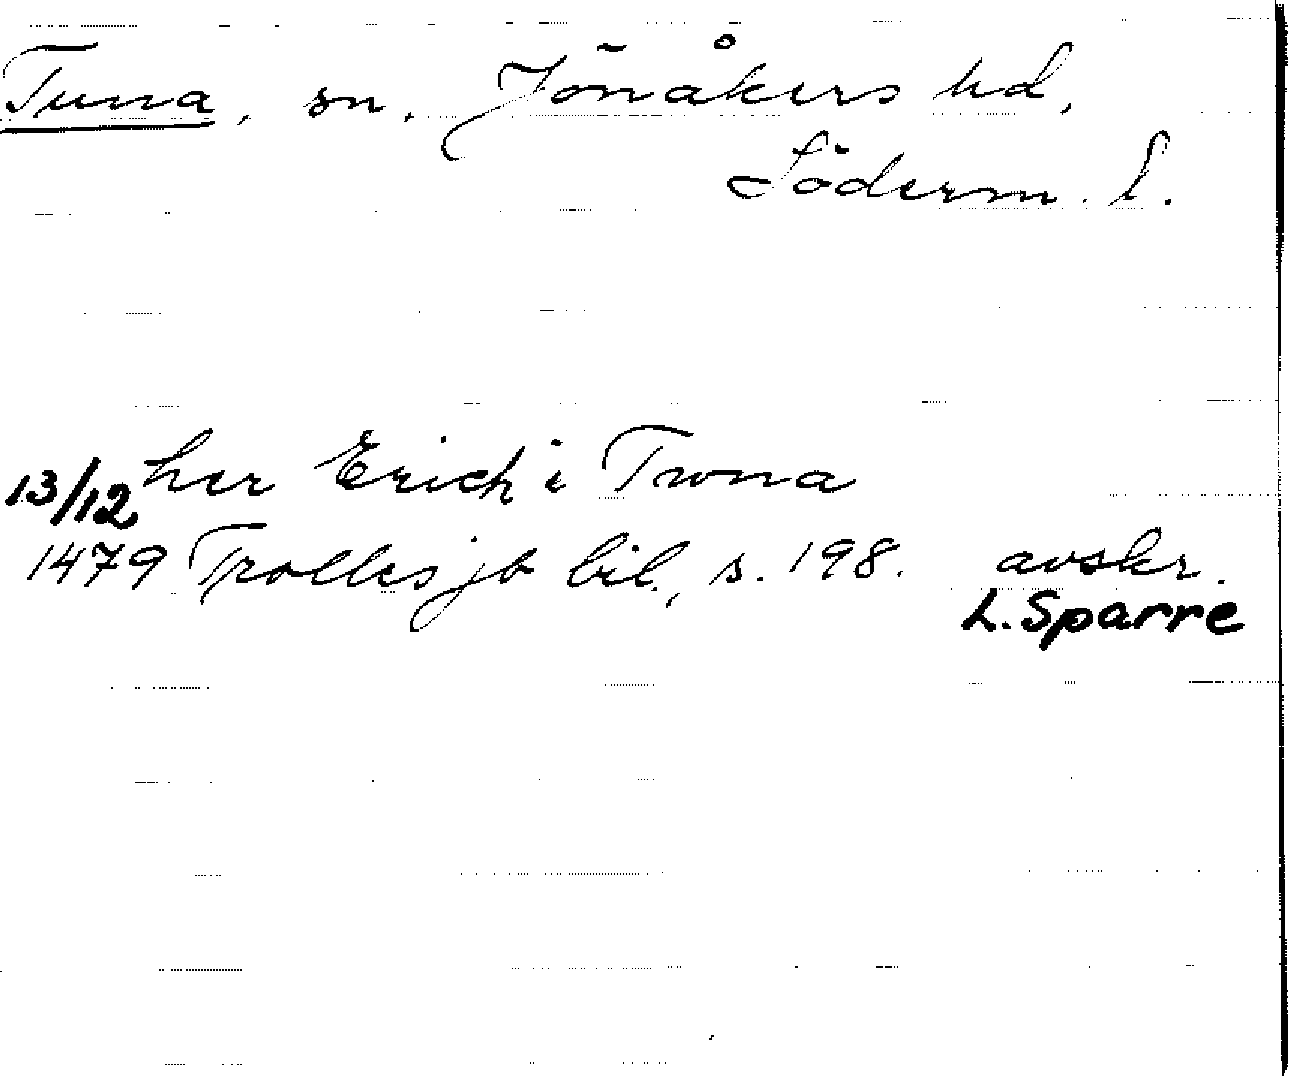 Tuna, sn, Jönåkers hd,
Söderm. l.
her Erich i Twna
13/12
1479 Trolles jb bil., s. 198. avskr.
L. Sparre